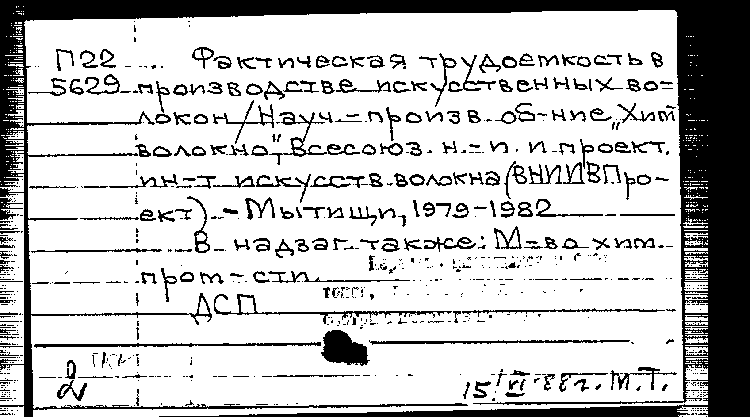 П22 ... Фактическая трудоемкость в
5629 производстве искусственных во=
локон / Науч.-произв. об-ние „Хим
волокно", Всесоюз. н.-и. и проект.
ин-т искусств. волокна (ВНИИВПро-
ект). - Мытищи, 1979-1982
В надзаг. также: М-во хим.
пром-сти.
ДСП
2
15/VI-88г. М.Т.